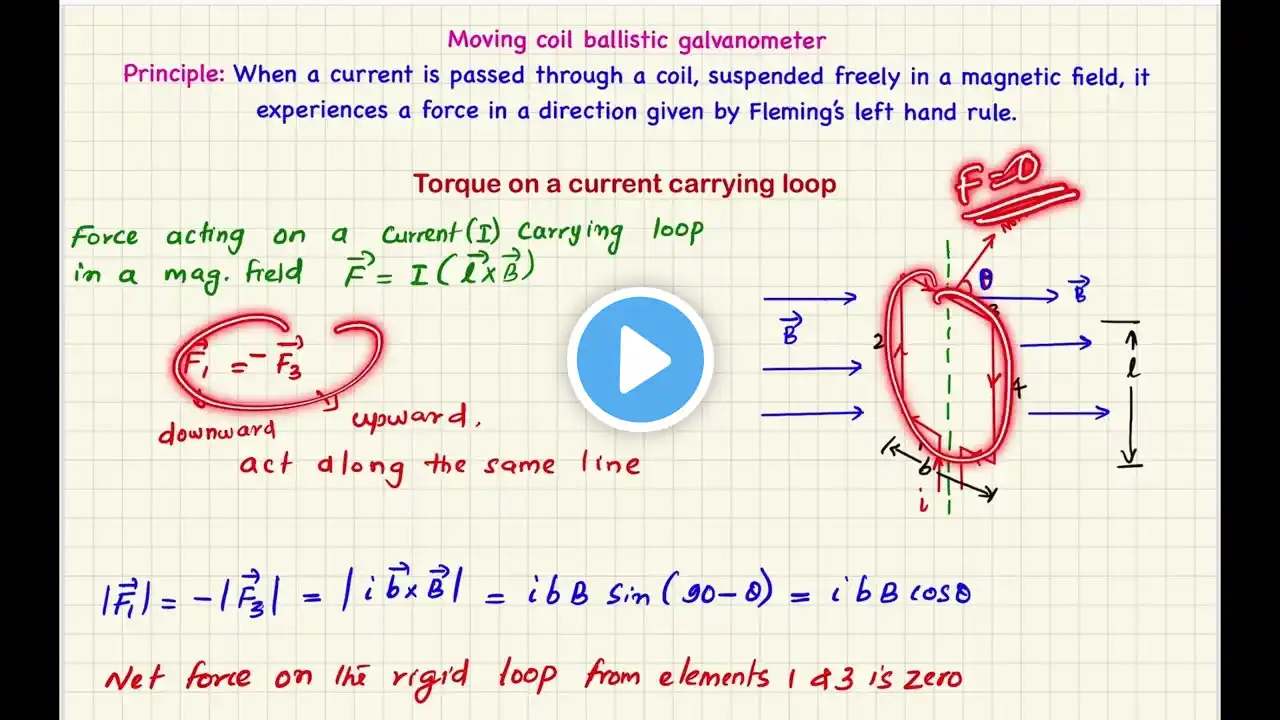 Moving coil ballistic galvanometer
Principle: When a current is passed through a coil, suspended freely in a magnetic field, it
experiences a force in a direction given by Fleming's left hand rule.
Torque on a current carrying loop
F=0
Force acting on a current (I) carrying loop
in a mag. field F⃗ = I ( l⃗ × B⃗ )
θ
B⃗
3
B⃗
2
l
F⃗₁ = - F⃗₃
4
downward upward,
1
act along the same line
b
i
|F⃗₁| = -|F⃗₃| = |i b⃗ × B⃗| = i b B sin (90 - θ) = i b B cosθ
Net force on the rigid loop from elements 1 & 3 is zero